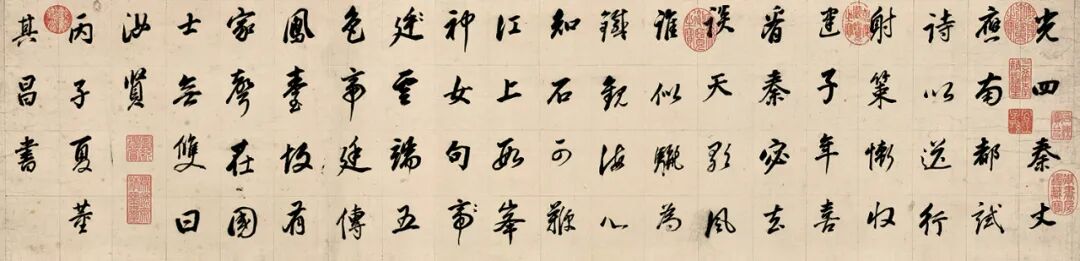 光四秦丈
應南都試
詩以送行
射策慚收
建子年喜
看秦宓去
談天風
誰似驪為
鐵觀海心
知石可鞭
江上數峯
神女句帝
廷雲端五
色帝廷傳
鳳臺故有
家聲在國
士無雙曰
汝賢
丙子夏董
其昌書